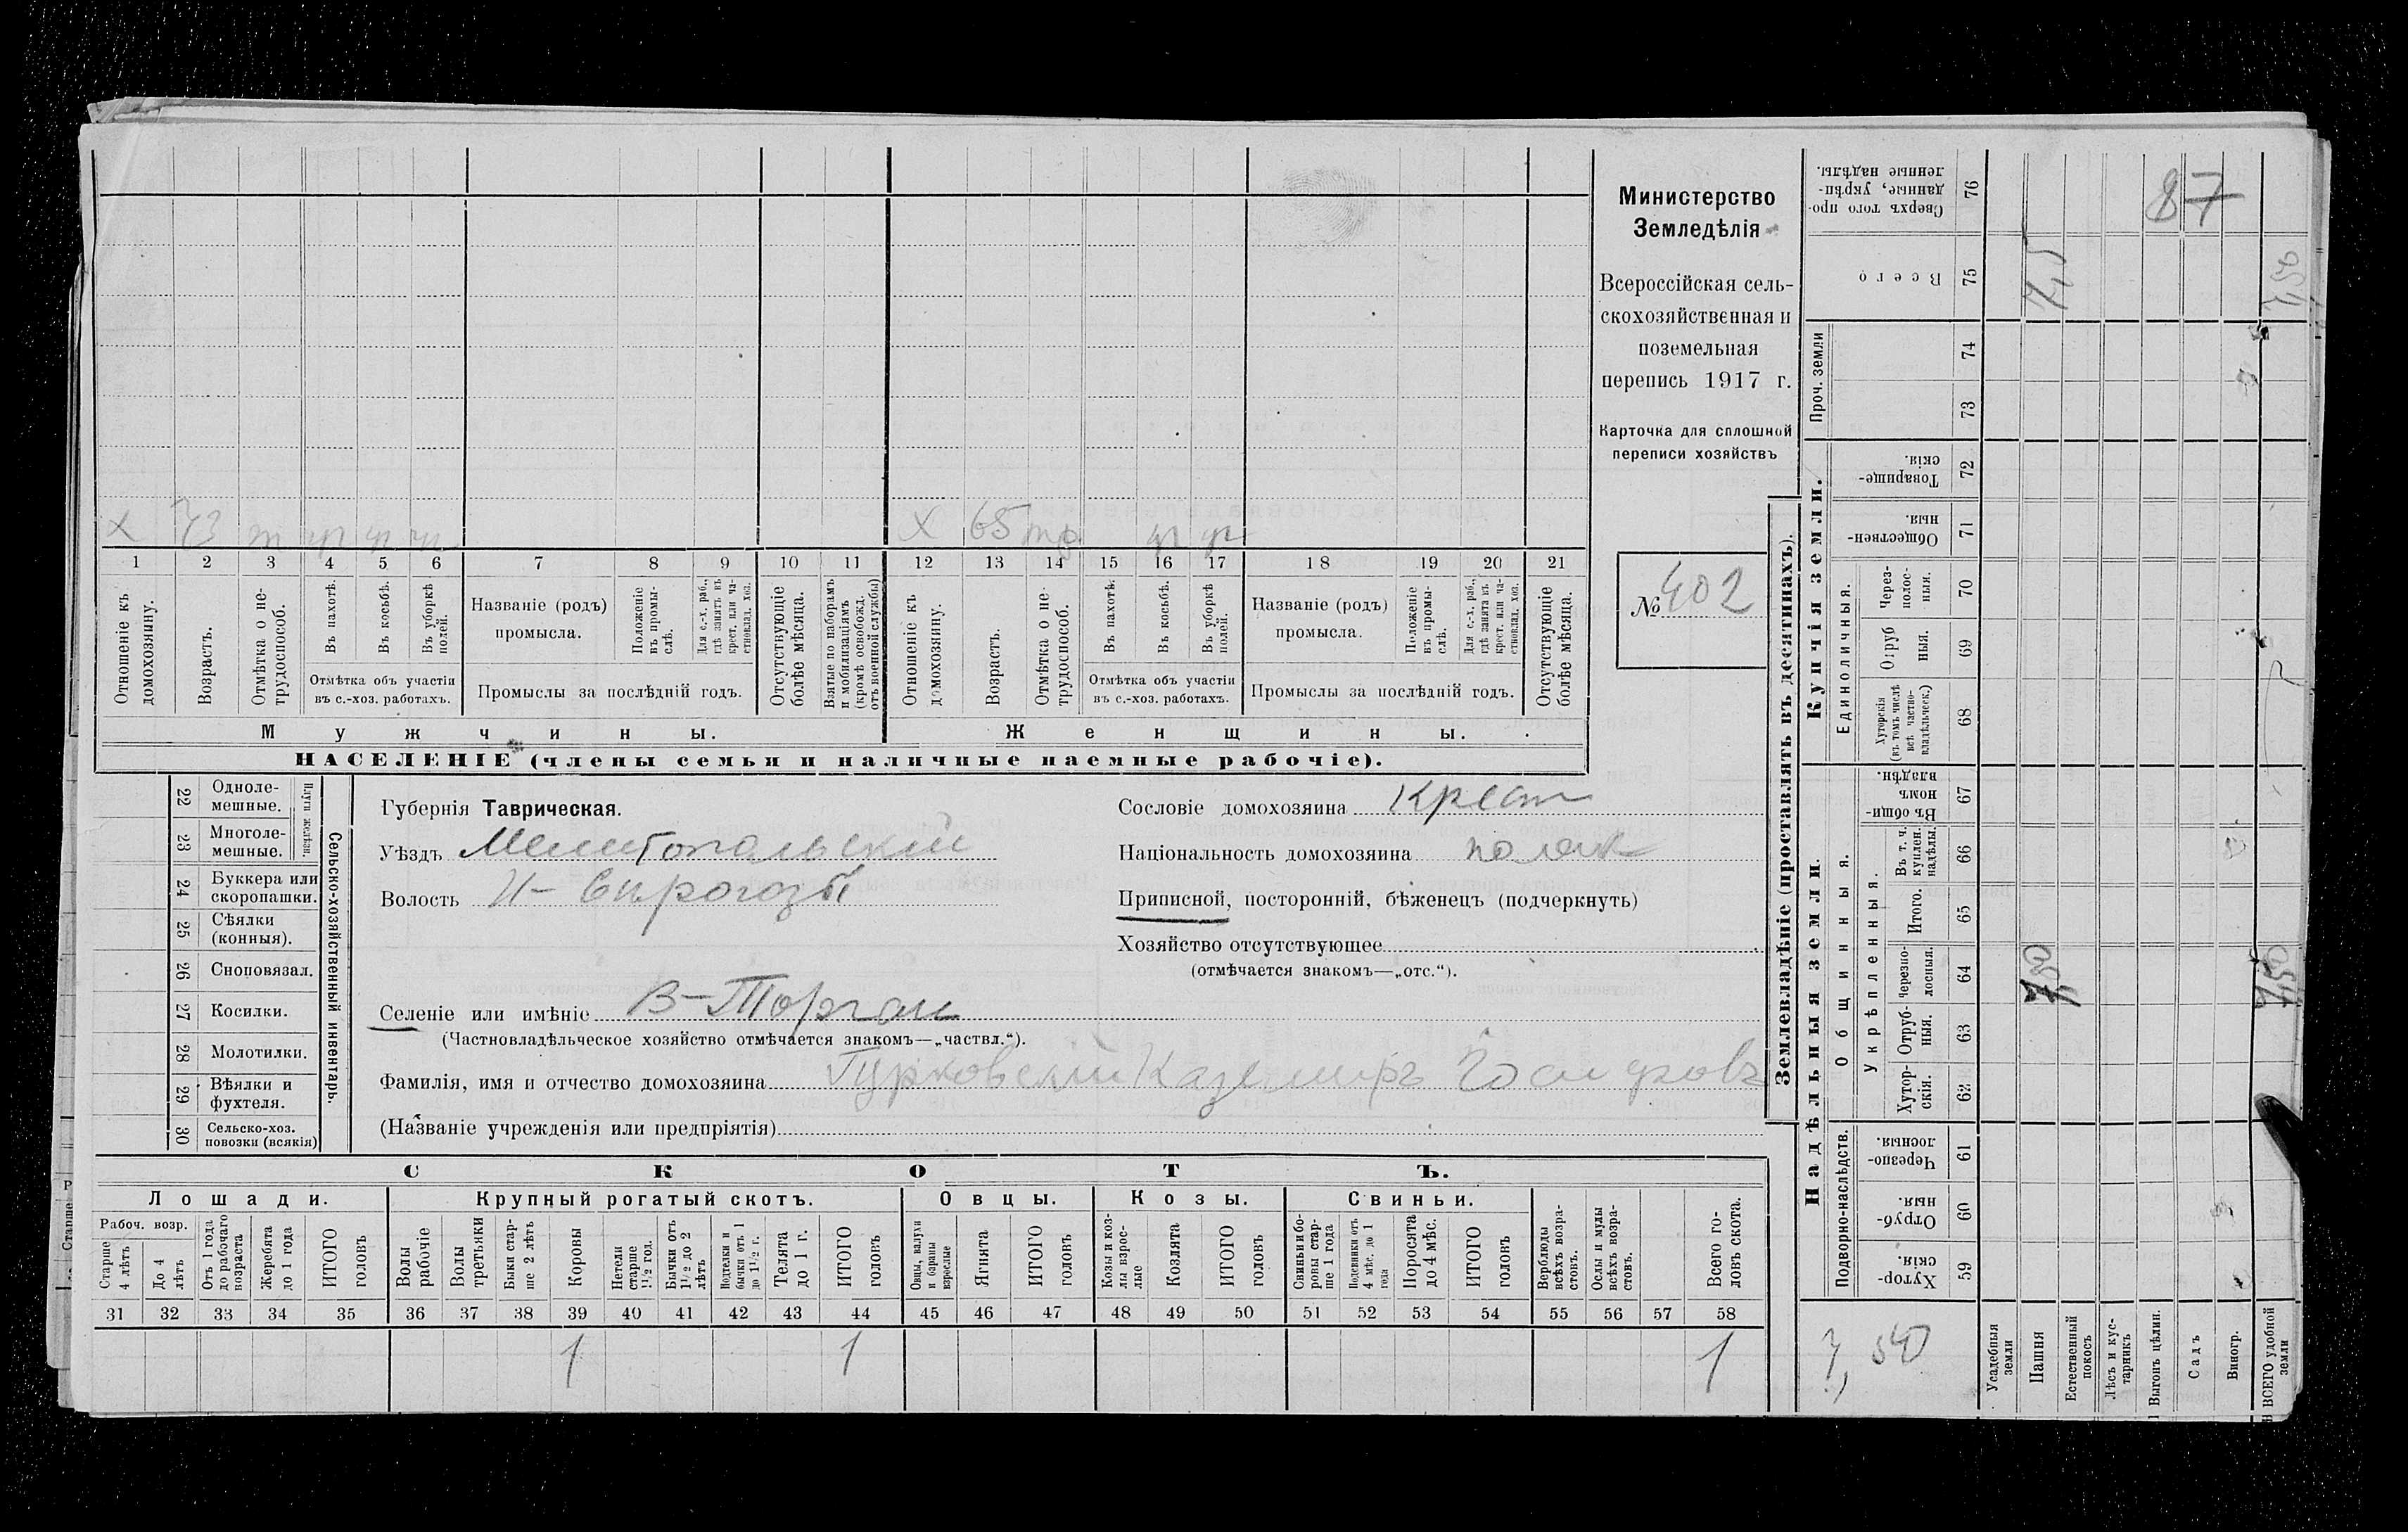 Министерство
Земледѣлія
Всероссійская сель-
скохозяйственная и
поземельная
перепись 1917 г.
Карточка для сплошной
переписи хозяйствъ
№ 402
87
Х 73
Х 65
1 2 3 4 5 6 7 8 9 10 11 12 13 14 15 16 17 18 19 20 21
Отношеніе къ домохозяину.
Возрастъ.
Отмѣтка о не-трудоспособ.
Въ пахотѣ.
Въ косьбѣ.
Въ уборкѣ полей.
Отмѣтка объ участіи
въ с.-хоз. работахъ.
Названіе (родъ)
промысла.
Положеніе въ промы-слѣ.
Для с.-х. раб., гдѣ занятъ въ крест. или ча-стновлад. хоз.
Промыслы за послѣдній годъ.
Отсутствующіе болѣе мѣсяца.
Взятые по наборамъ и мобилизаціямъ (кромѣ освобожд. отъ военной службы)
Отношеніе къ домохозяину.
Возрастъ.
Отмѣтка о не-трудоспособ.
Въ пахотѣ.
Въ косьбѣ.
Въ уборкѣ полей.
Отмѣтка объ участіи
въ с.-хоз. работахъ.
Названіе (родъ)
промысла.
Положеніе въ промы-слѣ.
Для с.-х. раб., гдѣ занята въ крест. или ча-стновлад. хоз.
Промыслы за послѣдній годъ.
Отсутствующіе болѣе мѣсяца.
Мужчины.
Женщины.
НАСЕЛЕНІЕ (члены семьи и наличные наемные рабочіе).
22 Одноле-мешные.
23 Многоле-мешные.
Плуги желѣзн.
24 Буккера или скоропашки.
25 Сѣялки (конныя).
26 Сноповязал.
27 Косилки.
28 Молотилки.
29 Вѣялки и фухтеля.
30 Сельско-хоз. повозки (всякія)
Сельско-хозяйственный инвентарь.
Губернія Таврическая.
Уѣздъ Мелитопольскій
Волость Н-Сирогозы
Селеніе или имѣніе В-Торгаи
(Частновладѣльческое хозяйство отмѣчается знакомъ—„частвл.“).
Фамилія, имя и отчество домохозяина Гурковскій Каземиръ Іосифовъ
(Названіе учрежденія или предпріятія)
Сословіе домохозяина Крест
Національность домохозяина поляк
Приписной, посторонній, бѣженецъ (подчеркнуть)
Хозяйство отсутствующее
(отмѣчается знакомъ—„отс.“).
СКОТЪ.
Лошади.
Крупный рогатый скотъ.
Овцы.
Козы.
Свиньи.
Рабоч. возр.
Старше 4 лѣтъ
До 4 лѣтъ
Отъ 1 года до рабочаго возраста
Жеребята до 1 года
ИТОГО головъ
Волы рабочіе
Волы третьяки
Быки стар-ше 2 лѣтъ
Коровы
Нетели старше 1½ год.
Бычки отъ 1½ до 2 лѣтъ
Подтелки и бычки отъ 1 до 1½ г.
Телята до 1 г.
ИТОГО головъ
Овцы, валухи и бараны взрослые
Ягнята
ИТОГО головъ
Козы и коз-лы взрос-лые
Козлята
ИТОГО головъ
Свиньи и бо-ровы стар-ше 1 года
Подсвинки отъ 4 мѣс. до 1 года
Поросята до 4 мѣс.
ИТОГО головъ
Верблюды всѣхъ возра-стовъ.
Ослы и мулы всѣхъ возра-стовъ.
Всего го-ловъ скота.
31 32 33 34 35 36 37 38 39 40 41 42 43 44 45 46 47 48 49 50 51 52 53 54 55 56 57 58
1 1 1
Землевладѣніе (проставлять въ десятинахъ).
Купчія земли.
Надѣльныя земли.
Проч. земли
Единоличныя.
Общинныя.
Укрѣпленныя.
Подворно-наслѣдств.
76 Сверхъ того про-данные, укрѣп-ленные надѣлы.
75 Всего
74
73
72 Товарище-скія.
71 Обществен-ныя.
70 Через-полос-ныя.
69 Отруб-ныя.
68 Хуторскія (въ томъ числѣ всѣ частно-владѣльческ.)
67 Въ общи-номъ владѣн.
66 Въ т. ч. куплен. надѣлы.
65 Итого.
64 Черезпо-лосныя.
63 Отруб-ныя.
62 Хутор-скія.
61 Черезпо-лосныя.
60 Отруб-ныя.
59 Хутор-скія.
7,50
Усадебныя земли
Пашня
Естественный покосъ
Лѣсъ и кус-тарникъ
Выгонъ цѣлин.
Садъ
Виногр.
ВСЕГО удобной земли